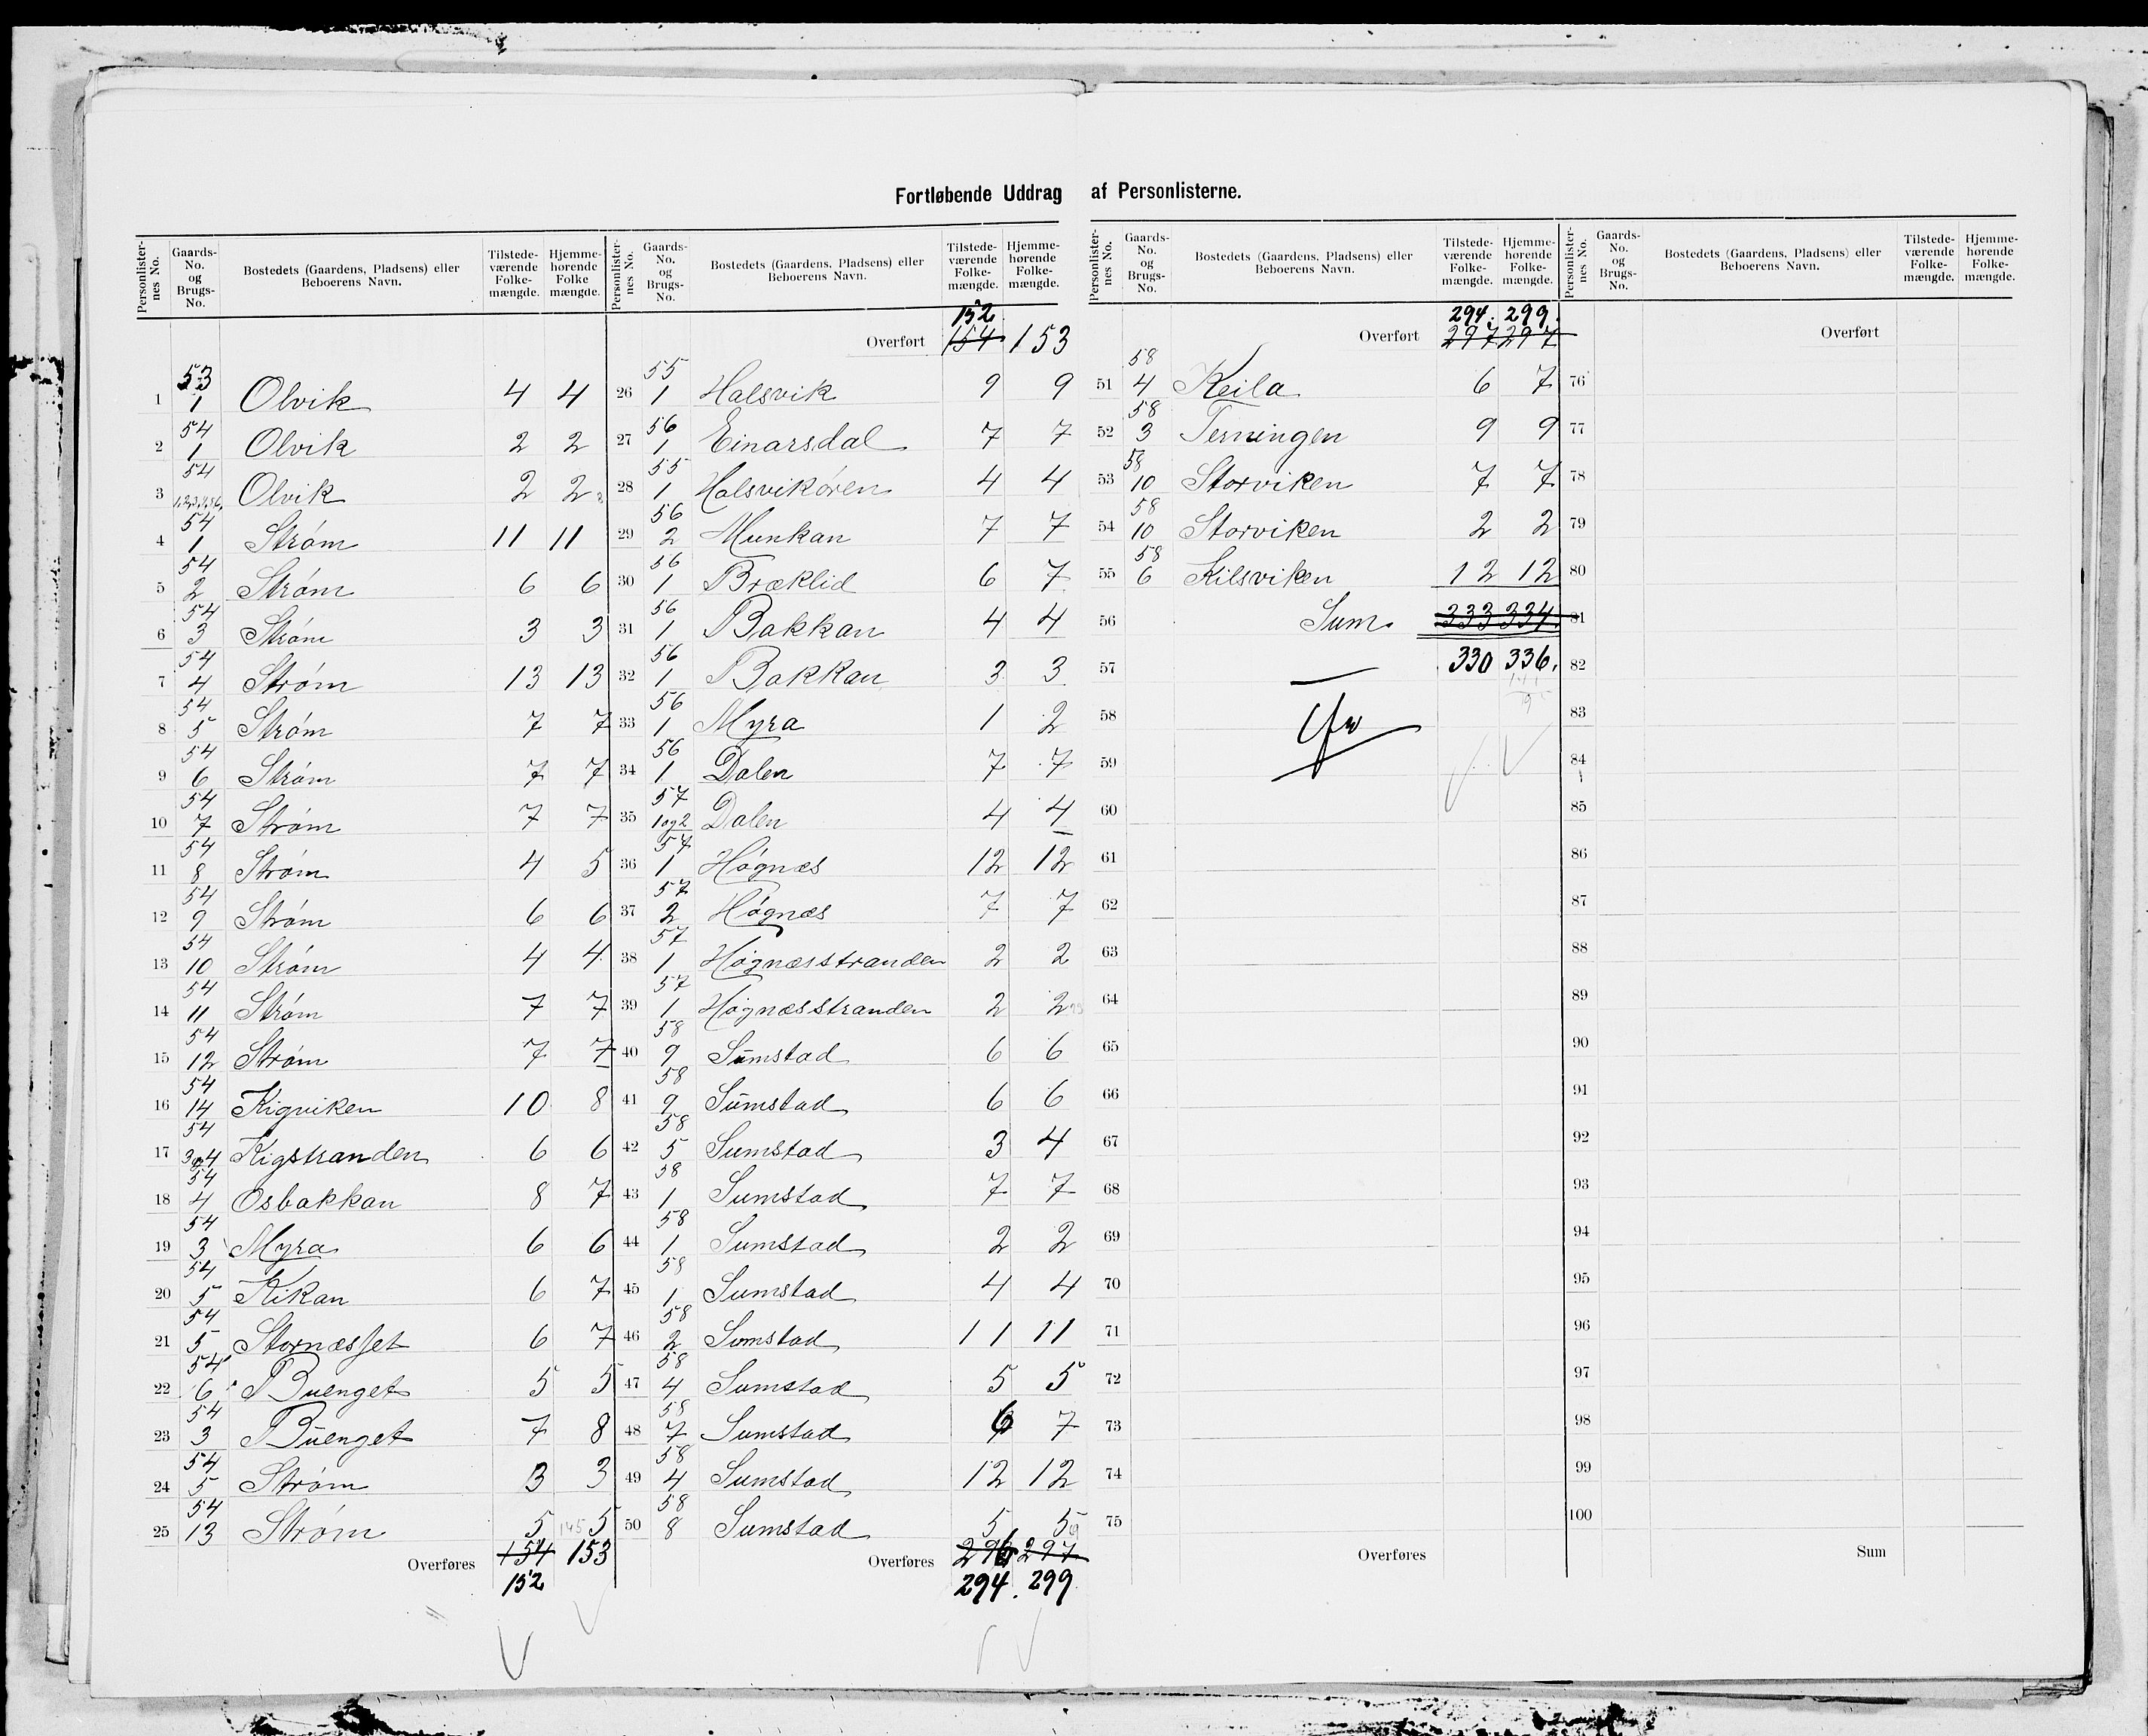 Fortløbende Uddrag af Personlisterne.
Personlister-nes No. Gaards-No. og Brugs-No. Bostedets (Gaardens, Pladsens) eller Beboerens Navn. Tilstede-værende Folke-mængde. Hjemme-hørende Folke mængde.
1 53 1 Olvik 4 4
2 54 1 Olvik 2 2
3 54 1,2,3,4,5,6, Olvik 2 2
4 54 1 Strøm 11 11
5 54 2 Strøm 6 6
6 54 3 Strøm 3 3
7 54 4 Strøm 13 13
8 54 5 Strøm 7 7
9 54 6 Strøm 7 7
10 54 7 Strøm 7 7
11 54 8 Strøm 4 5
12 54 9 Strøm 6 6
13 54 10 Strøm 4 4
14 54 11 Strøm 7 7
15 54 12 Strøm 7 7
16 54 14 Kigviken 10 8
17 54 3og4 Kigstranden 6 6
18 54 4 Osbakkan 8 7
19 54 3 Myra 6 6
20 54 5 Kikan 6 7
21 54 5 Stornæsset 6 7
22 54 6 Buenget 5 5
23 54 3 Buenget 7 8
24 54 5 Strøm 3 3
25 54 13 Strøm 5 145 5
Overføres 154 153
152
Personlister-nes No. Gaards-No. og Brugs-No. Bostedets (Gaardens, Pladsens) eller Beboerens Navn. Tilstede-værende Folke-mængde. Hjemme-hørende Folke-mængde.
152
Overført 154 153
26 55 1 Halsvik 9 9
27 56 1 Einarsdal 7 7
28 55 1 Halsvikøren 4 4
29 56 2 Munkan 7 7
30 56 1 Bræklid 6 7
31 56 1 Bakkan 4 4
32 56 1 Bakkan 3 3
33 56 1 Myra 1 2
34 56 1 Dalen 7 7
35 57 1og2 Dalen 4 4
36 57 1 Høgnæs 12 12
37 57 2 Høgnæs 7 7
38 57 1 Høgnæsstranden 2 2
39 57 1 Høgnæsstranden 2 2
40 58 9 Sumstad 6 6
41 58 9 Sumstad 6 6
42 58 5 Sumstad 3 4
43 58 1 Sumstad 7 7
44 58 1 Sumstad 2 2
45 58 1 Sumstad 4 4
46 58 2 Sumstad 11 11
47 58 4 Sumstad 5 5
48 58 7 Sumstad 6 7
49 58 4 Sumstad 12 12
50 58 8 Sumstad 5 5
Overføres 296 297
294. 299
Personlister-nes No. Gaards-No. og Brugs-No. Bostedets (Gaardens, Pladsens) eller Beboerens Navn. Tilstede-værende Folke-mængde. Hjemme-hørende Folke-mængde.
294. 299.
Overført 297 297
51 58 4 Keila 6 7
52 58 3 Terningen 9 9
53 58 10 Storviken 7 7
54 58 10 Storviken 2 2
55 58 6 Kilsviken 12 12
56 Sum. 333 334
57 — 330 336.
58
59
60
61
62
63
64
65
66
67
68
69
70
71
72
73
74
75
Overføres
Personlister-nes No. Gaards-No. og Brugs-No. Bostedets (Gaardens, Pladsens) eller Beboerens Navn. Tilstede-værende Folke-mængde. Hjemme-hørende Folke-mængde.
Overført
76
77
78
79
80
81
82
83
84
85
86
87
88
89
90
91
92
93
94
95
96
97
98
99
100
Sum